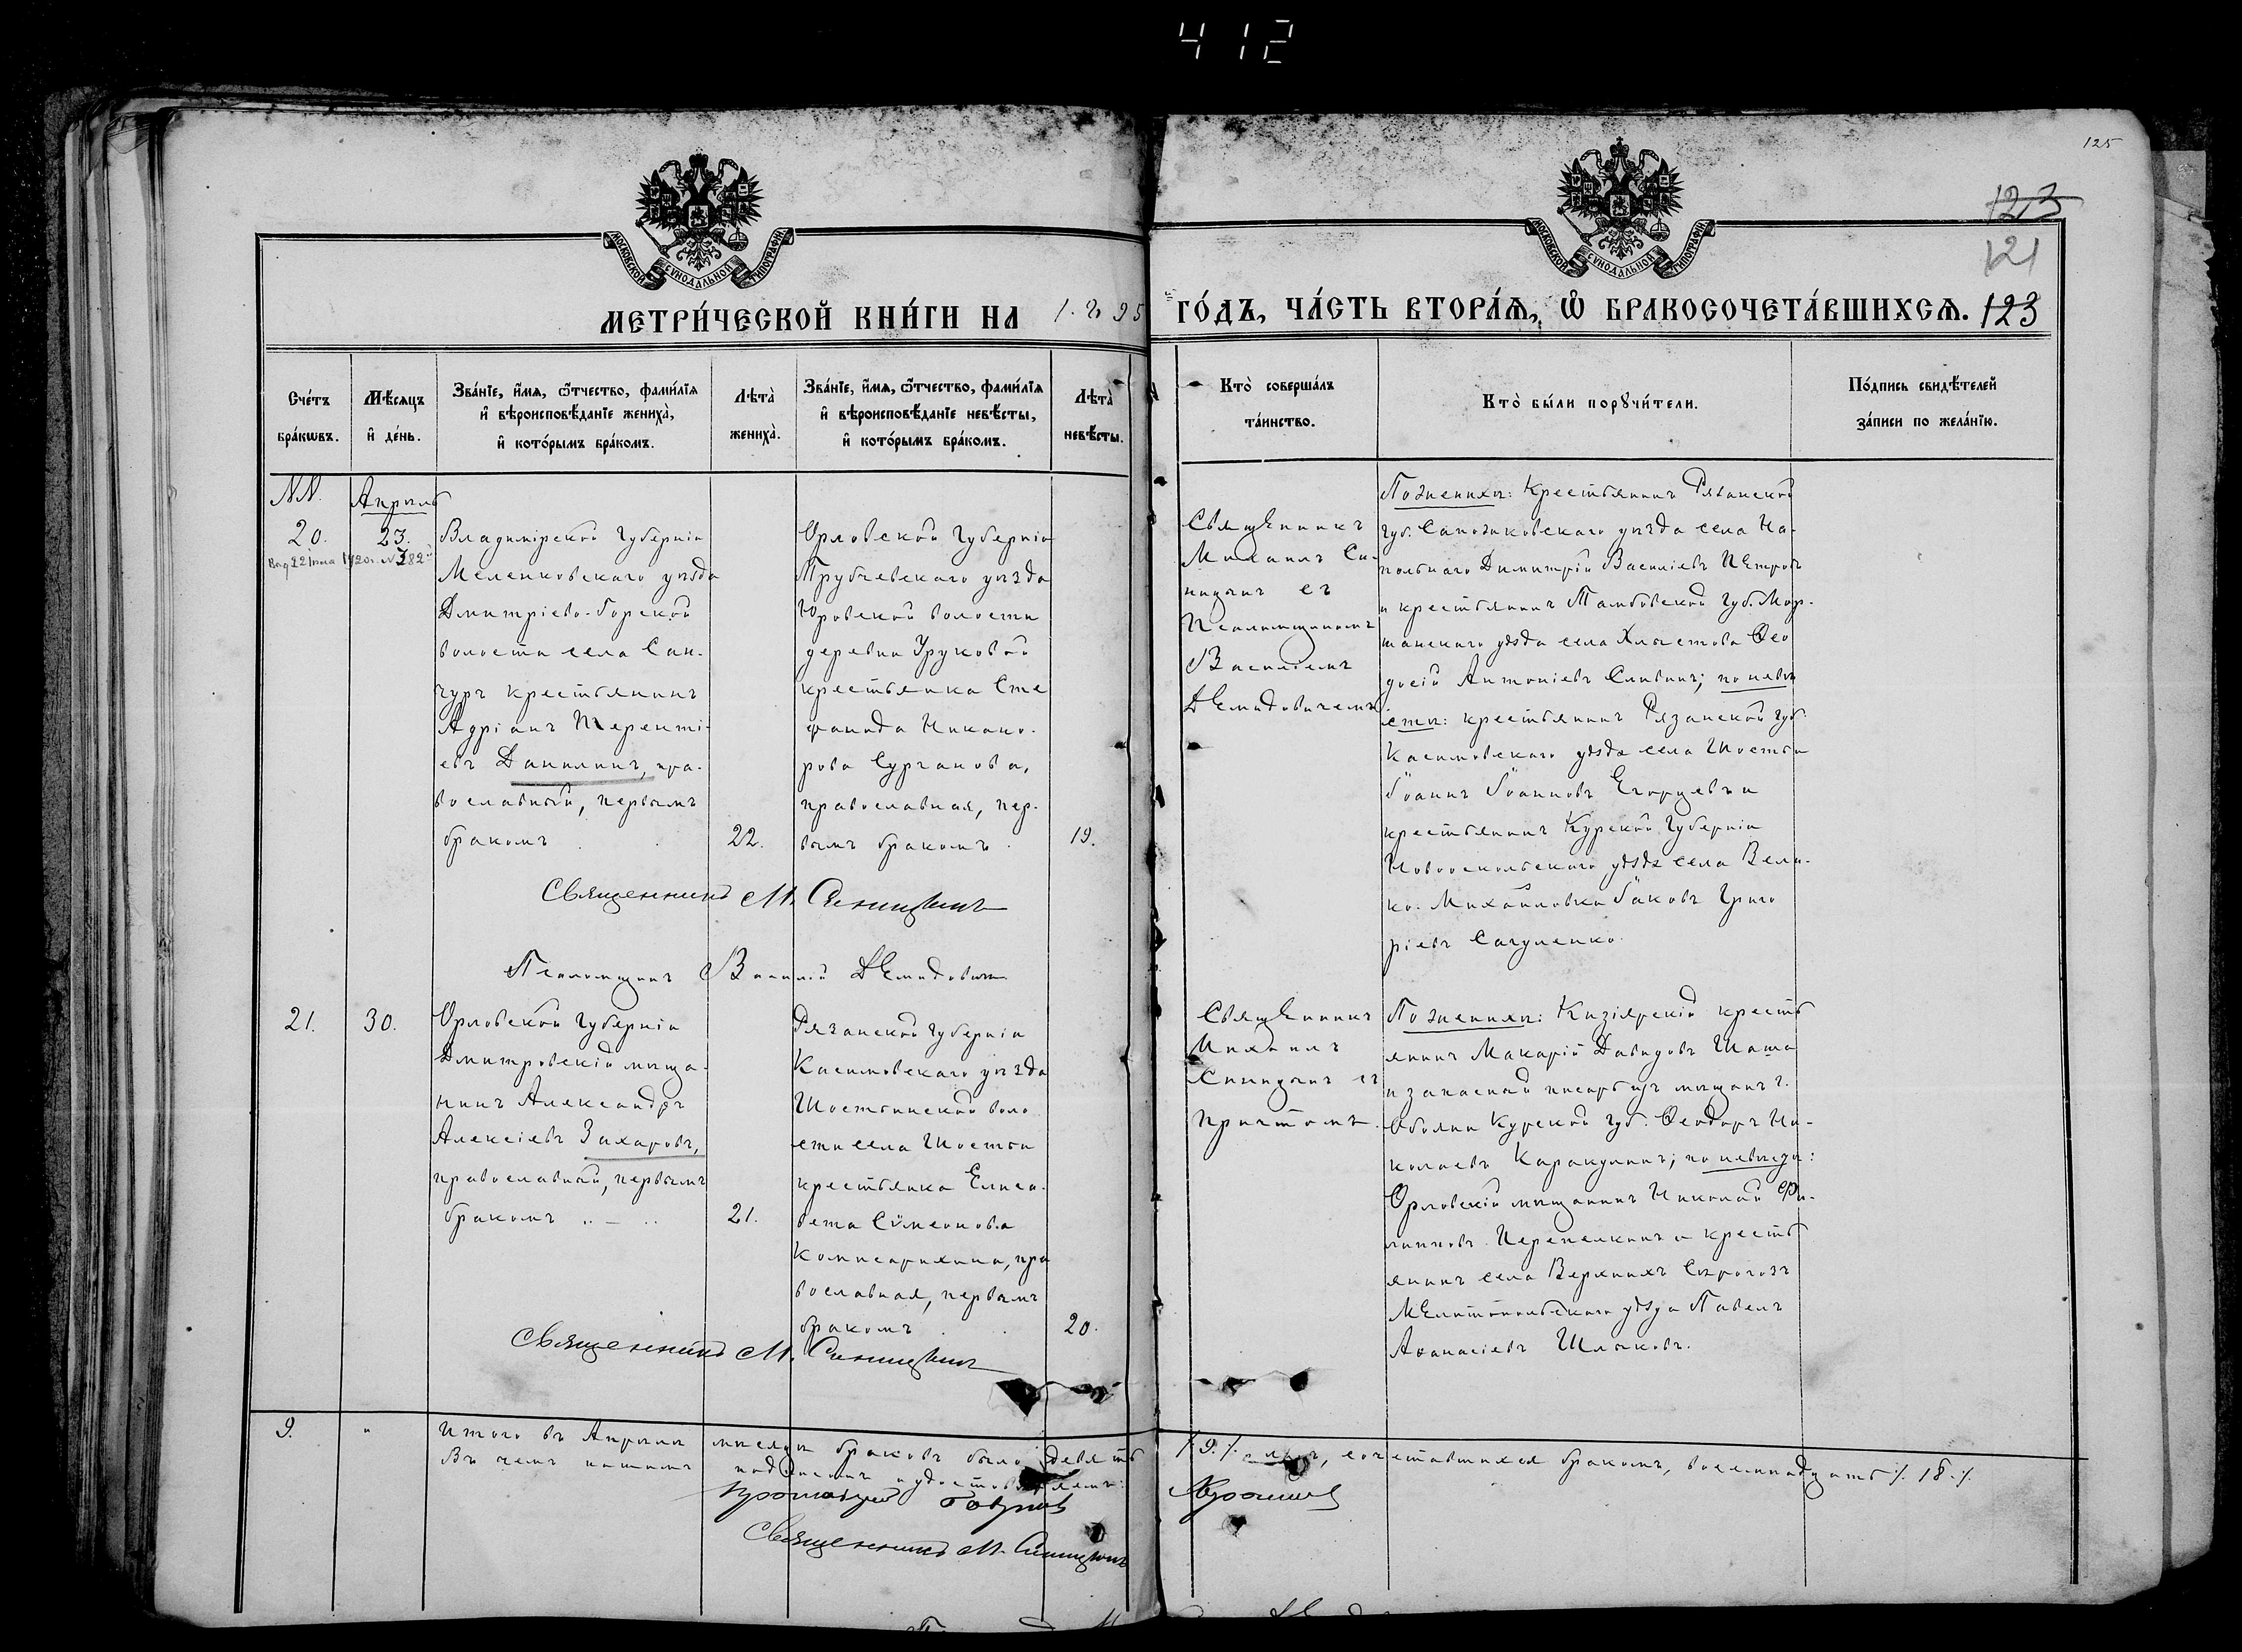 412
125
123
121
123
МОСКОВСКОЙ СѴНОДАЛЬНОЙ ТИПОГРАФІИ
МОСКОВСКОЙ СѴНОДАЛЬНОЙ ТИПОГРАФІИ
МЕТРИ́ЧЕСКОЙ КНИ́ГИ НА 1895 ГО́ДЪ, ЧА́СТЬ ВТОРА́Ѧ, Ѽ БРАКОСОЧЕТА́ВШИХСѦ.
Сче́тъ бра́кѡвъ.
Мѣ́сяцъ и҆ де́нь.
Зва́нїе, и҆́мѧ, ѻ҆́тчество, фами́лїѧ и҆ вѣроисповѣ́данїе жениха̀, и҆ кото́рымъ бра́комъ.
Лѣта̀ жениха̀.
Зва́нїе, и҆́мѧ, ѻ҆́тчество, фами́лїѧ и҆ вѣроисповѣ́данїе невѣ́сты, и҆ кото́рымъ бра́комъ.
Лѣта̀ невѣ́сты.
Кто̀ соверша́лъ та́инство.
Кто̀ бы́ли порꙋчи́тели.
По́дпись свидѣ́телей за́писи по жела́нїю.
NN.
Апрѣль
20.
23.
Владимірской губерніи
Меленковскаго уѣзда
Дмитріево-Горской
волости села Сан-
чуръ крестьянинъ
Адріанъ Теренті-
евъ Данилинъ, пра-
вославный, первымъ
бракомъ
22.
Орловской губерніи
Трубчевскаго уѣзда
Юровской волости
деревни Уруковой
крестьянка Сте
фанида Никано-
рова Сурганова,
православная, пер-
вымъ бракомъ.
19.
Священникъ
Михаилъ Си-
ницынъ съ
Псаломщикомъ
Василіемъ
Демидовичемъ
По женихѣ: крестьянинъ Рязанской
губ. Сапожковскаго уѣзда села На-
польнаго Димитрій Василіевъ Петровъ
и крестьянинъ Тамбовской губ. Мор-
шанскаго уѣзда села Хлыстова Ѳео
досій Антоніевъ Сливинъ; по невѣ
стѣ: крестьянинъ Рязанской губ.
Касимовскаго уѣзда села Шостьи
Іоаннъ Іоанновъ Егорцевъ и
крестьянинъ Курской губерніи
Новооскольскаго уѣзда села Вели-
ко-Михайловки Іаковъ Григо
ріевъ Сагуленко.
Священникъ М. Синицынъ
Псаломщикъ Василій Демидовичъ
21.
30.
Орловской губерніи
Дмитровскій мѣща-
нинъ Александръ
Алексіевъ Захаровъ,
православный, первымъ
бракомъ
21.
Рязанской губерніи
Касимовскаго уѣзда
Шостьинской воло
сти села Шостьи
крестьянка Елиса-
вета Симеонова
Комисарихина, пра
вославная, первымъ
бракомъ
20.
Священникъ
Михаилъ
Синицынъ съ
причтомъ.
По женихѣ: Кизіярскій кресть
янинъ Макарій Давидовъ Шаша
и запасный писарь изъ мѣщанъ г.
Обояни Курской губ. Ѳеодоръ Ни-
колаевъ Каракулинъ; по невѣстѣ:
Орловскій мѣщанинъ Николай Фи-
липповъ Перепелкинъ и кресть
янинъ села Верхнихъ Сѣрогозъ
Мелитопольскаго уѣзда Павелъ
Аѳанасіевъ Шлыковъ.
Священникъ М. Синицынъ
9.
"
Итого въ Апрѣлѣ мѣсяцѣ браковъ было девять /.9./. лицъ, сочетавшихся бракомъ, восемнадцать /.18./.
Въ чемъ нашимъ подписомъ удостовѣряемъ:
Протоіерей
Священникъ М. Синицынъ